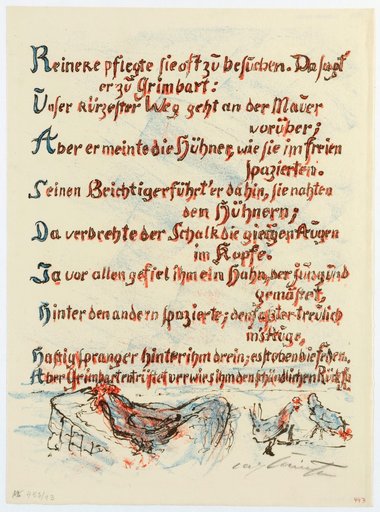 Reineke pflegte sie oft zu besuchen. Da sagt
er zu Grimbart:
Unser kürzester Weg geht an der Mauer
vorüber;
Aber er meinte die Hühner, wie sie im freien
spazierten.
Seinen Beichtiger führt' er dahin, sie nahten
den Hühnern;
Da verdrehte der Schalk die gier'gen Augen
im Kopfe.
Ja vor allen gefiel ihm ein Hahn, der jung und
gemästet,
Hinter den andern spazierte; den faßt er treulich
ins Auge,
Hastig sprang er hinter ihm drein; es stoben die Federn.
Aber Grimbart entrüstet verwies ihm den schändlichen Rückfall
443